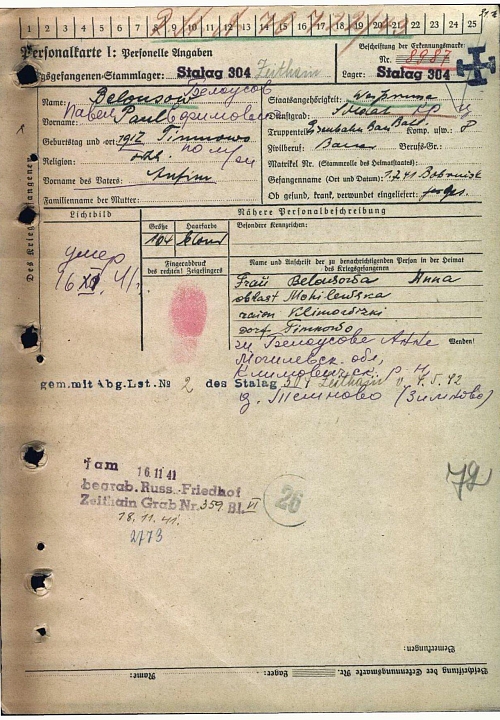 1 2 3 4 5 6 7 8 9 10 11 12 13 14 15 16 17 18 19 20 21 22 23 24 25
Personalkarte I: Personelle Angaben
Beschriftung der Erkennungsmarke
Nr. 8987
Kriegsgefangenen-Stammlager: Stalag 304 Zeithain
Lager: Stalag 304
Des Kriegsgefangenen
Name: Belousow Белоусов
Staatsangehörigkeit:
Vorname: Paul Павел Ефимович
Dienstgrad: Soldat
Truppenteil: Komp. usw.: 8
Geburtstag und -ort: 1912 Timnowo
Zivilberuf: Bauer Berufs-Gr.:
Religion:
Matrikel Nr. (Stammrolle des Heimatstaates):
Vorname des Vaters:
Gefangennahme (Ort und Datum): 1.7.41 Bobruisk
Familienname der Mutter:
Ob gesund, krank, verwundet eingeliefert:
Lichtbild
Nähere Personalbeschreibung
Größe Haarfarbe
Besondere Kennzeichen:
164 blond
Fingerabdruck
des rechten Zeigefingers
Name und Anschrift der zu benachrichtigenden Person in der Heimat
des Kriegsgefangenen
умер
16 XI 41 г.
Frau Belousowa Anna
oblast Mohilewska
raion Klimowizki
dorf Timnowo
Wenden!
Белоусове Анне
Могилевск. обл,
Климовичск. р-н
gem. mit Abg. Lst. № 2 des Stalag 304 Zeithain v. 4.5.42
д. Темново (Зимново)
† am 16.11.41
begrab. Russ.-Friedhof
Zeithain Grab Nr. 359 Bl. VI
18.11.41.
2773
26
72
Bemerkungen:
Beschriftung der Erkennungsmarke Nr. Lager: Name: